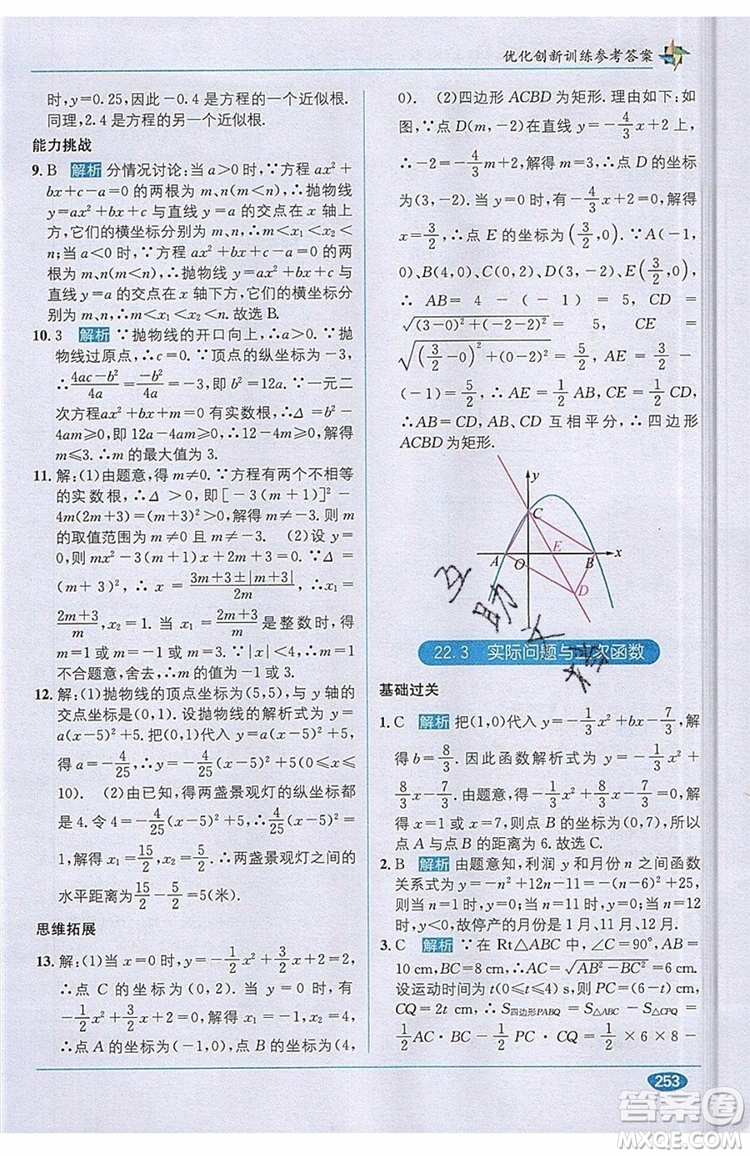 优化创新训练参考答案
时,y=0.25,因此-0.4是方程的一个近似根.
同理,2.4是方程的另一个近似根.
能力挑战
9. B 解析 分情况讨论:当a>0时,∵方程ax²+
bx+c-a=0的两根为m、n(m<n),∴抛物线
y=ax²+bx+c与直线y=a的交点在x轴上
方,它们的横坐标分别为m、n,∴m<x₁<x₂<n;
当a<0时,∵方程ax²+bx+c-a=0的两根为
m、n(m<n),∴抛物线y=ax²+bx+c与直线
y=a的交点在x轴下方,它们的横坐标分别为
m、n,∴m<x₁<x₂<n.故选B.
10. 3 解析 ∵抛物线的开口向上,∴a>0.∵抛
物线过原点,∴c=0.∵顶点的纵坐标为-3,
∴(4ac-b²)/(4a)=(-b²)/(4a)=-3,即b²=12a.∵一元二
次方程ax²+bx+m=0有实数根,∴Δ=b²-
4am≥0,即12a-4am≥0,即12-4m≥0,解得
m≤3.∴m的最大值为3.
11. 解:(1)由题意,得m≠0.∵方程有两个不相等
的实数根,∴Δ>0,即[-3(m+1)]²-
4m(2m+3)=(m+3)²>0.解得m≠-3.则m
的取值范围为m≠0和m≠-3. (2)∵Δ=
(m+3)²>0,∴x=(3m+3±|m+3|)/(2m).∴x₁=
(2m+3)/m,x₂=1.当x₁=(2m+3)/m是整数时,可得
m=1或m=-1或m=3.∵|x|<4,∴m=1
不合题意,舍去,∴m的值为-1或3.
12. 解:(1)抛物线的顶点坐标为(5,5),与y轴的
交点坐标是(0,1).设抛物线的解析式为y=
a(x-5)²+5.把(0,1)代入y=a(x-5)²+5,
得a=-4/25,∴y=-4/25(x-5)²+5(0≤x≤
10). (2)由已知,得两盏景观灯的纵坐标都
是4.令4=-4/25(x-5)²+5,∴4/25(x-5)²=
1.解得x₁=15/2,x₂=5/2.∴两盏景观灯间的
水平距离为15/2-5/2=5(米).
思维拓展
13. 解:(1)当x=0时,y=-1/2x²+3/2x+2=2,
∴点C的坐标为(0,2).当y=0时,有
-1/2x²+3/2x+2=0,解得x₁=-1,x₂=4.
∴点A的坐标为(-1,0),点B的坐标为(4,
0). (2)四边形ACBD为矩形.理由如下:如
图,∵点D(m,-2)在直线y=-4/3x+2上,
∴-2=-4/3m+2.解得m=3.∴点D的坐标
为(3,-2).当y=0时,有-4/3x+2=0,解得
x=3/2,∴点E的坐标为(3/2,0).∵A(-1,
0),B(4,0),C(0,2),D(3,-2),E(3/2,0),
∴AB=4-(-1)=5,CD=
√((3-0)²+(-2-2)²)=5,CE=
√((3/2-0)²+(0-2)²)=5/2,AE=3/2-
(-1)=5/2,∴AB=CD,AE=1/2AB,CE=
1/2CD.∴AB、CD互相平分,∴四边形
ACBD为矩形.
y
C
A O E B x
D
22.3 实际问题与二次函数
基础过关
1. C 解析 把(1,0)代入y=x²+bx-7/3,解
得b=8/3.∴因此函数解析式为y=-x²+
8/3x-7/3.由题意,得-x²+8/3x-7/3=0,解得
x=1或x=7,则点B的坐标为(0,7),所
以点A与点B的距离为7-1=6.故选C.
2. B 解析 由题意知,利润y和月份n之间函数
关系式为y=-n²+15n-36.令y=0,则n=3
或12,故停产的月份是1月、2月、12月.
3. C 解析 ∵在Rt△ABC中,∠C=90°,AB=
10 cm,BC=8 cm,∴AC=√(AB²-BC²)=6 cm.
设运动时间为t(0≤t≤4) s,则PC=(6-t) cm,
CQ=2t cm,∴S四边形PABQ=S△ABC-S△CPQ=
1/2AC·BC-1/2PC·CQ=1/2×6×8-
253
互助文档
答案圈
MXQE.COM